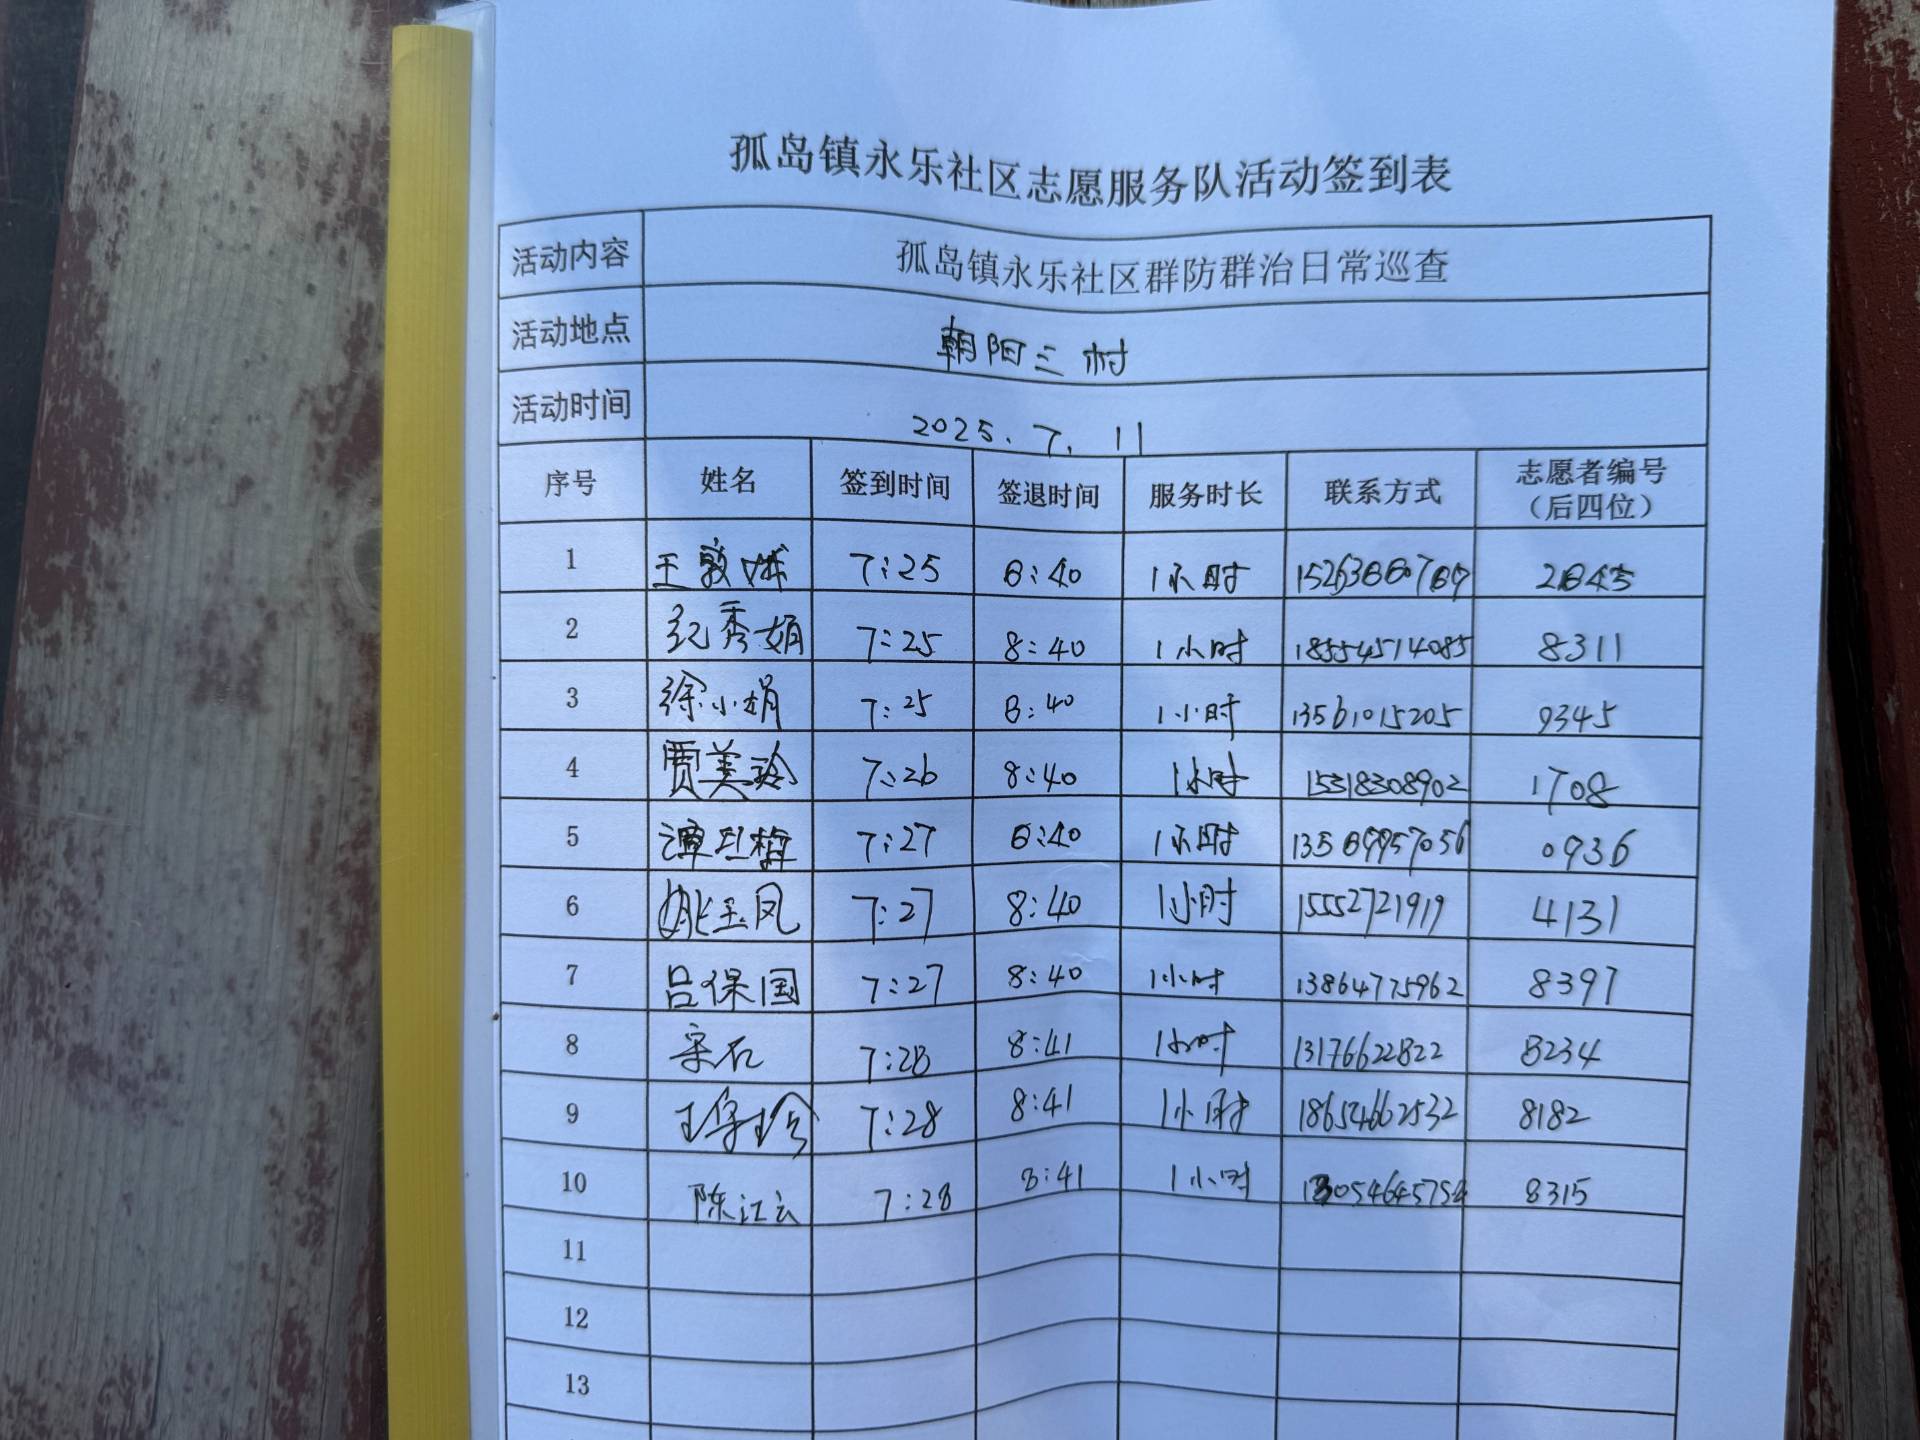 孤岛镇永乐社区志愿服务队活动签到表
活动内容 孤岛镇永乐社区群防群治日常巡查
活动地点 朝阳三村
活动时间 2025.7.11
序号 姓名 签到时间 签退时间 服务时长 联系方式 志愿者编号（后四位）
1 王敦 7:25 8:40 1小时
2 纪秀娟 7:25 8:40 1小时 18554514085 8311
3 徐小娟 7:25 8:40 1小时 13561015205 9345
4 贾美玲 7:26 8:40 1小时 15318308902 1708
5 谭 梅 7:27 8:40 1小时 0936
6 姚玉凤 7:27 8:40 1小时 15552721919 4131
7 吕保国 7:27 8:40 1小时 13864775962 8397
8 7:28 8:41 1小时 13176622822 8234
9 7:28 8:41 1小时 18654662532 8182
10 陈江云 7:28 8:41 1小时 8315
11
12
13